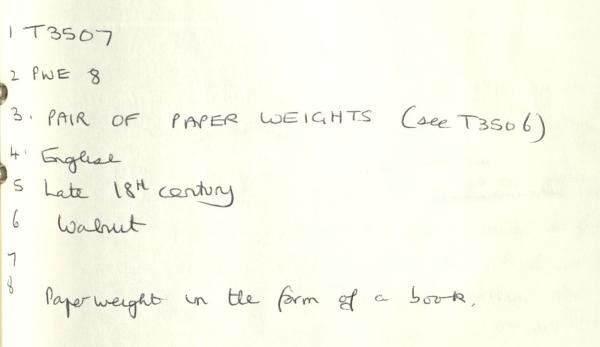 1 T3507
2 PWE 8
3. PAIR OF PAPER WEIGHTS (see T3506)
4. English
5 Late 18th century
6 Walnut
7
8 Paperweight in the form of a book.